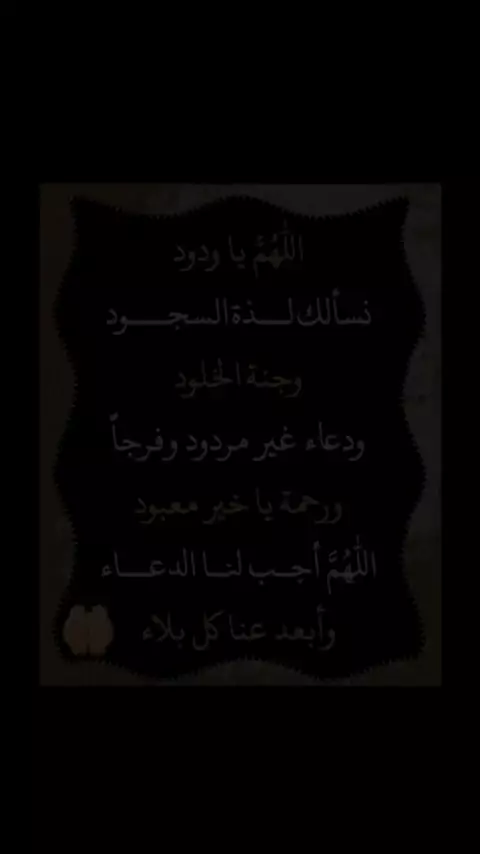 اللّٰهُمَّ يا ودود
نسألك لـــذة السجـــود
وجنة الخلود
ودعاء غير مردود وفرجاً
ورحمة يا خير معبود
اللّٰهُمَّ أجـب لنـا الدعـــاء
وأبعد عنا كل بلاء